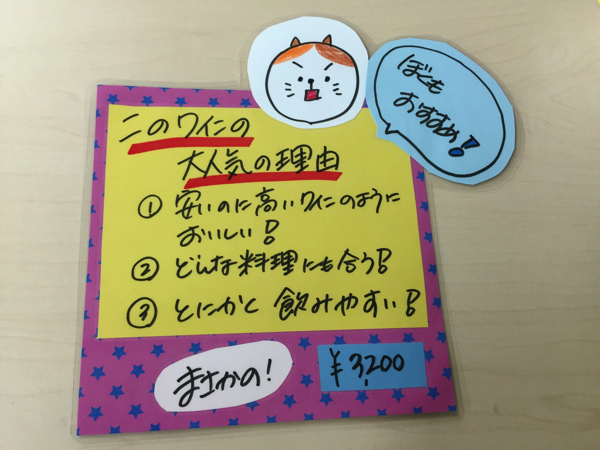 ぼくも
おすすめ!
このワインの
大人気の理由
① 安いのに高いワインのように
おいしい!
② どんな料理にも合う!
③ とにかく 飲みやすい!
まさかの!
¥3,200